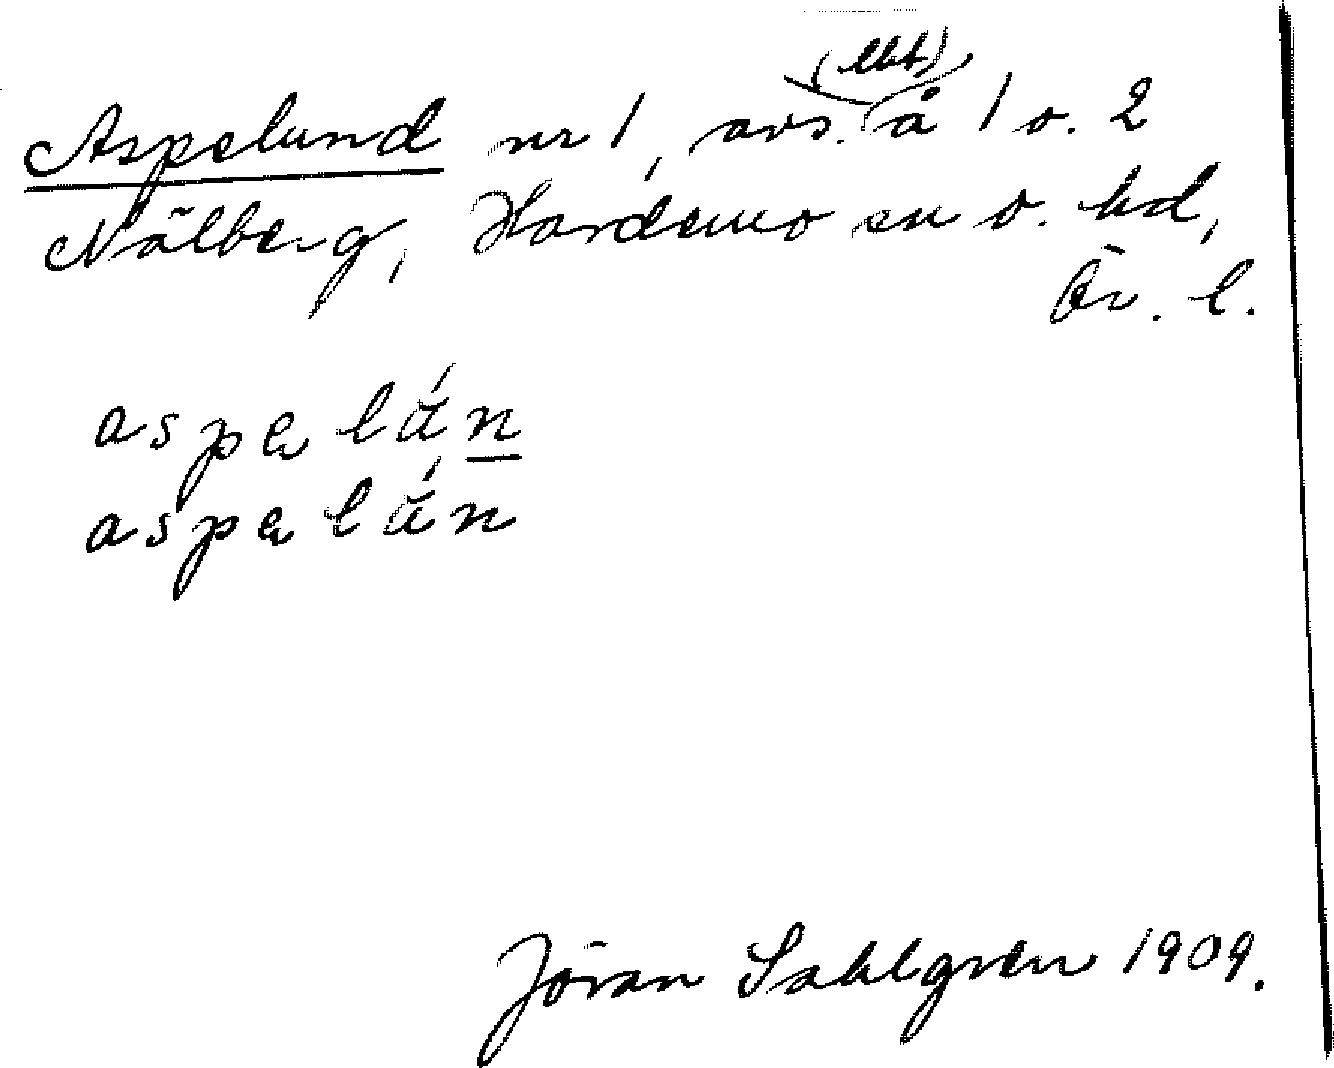 (lht)
Aspelund nr 1, avs. å 1 o. 2
Nälberg, Hardemo sn o. hd,
Ör. l.
aspelán
aspelán
Jöran Sahlgren 1909.